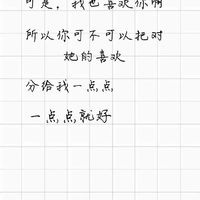 可是，我也喜欢你啊
所以你可不可以把对
她的喜欢
分给我一点点
一点点就好